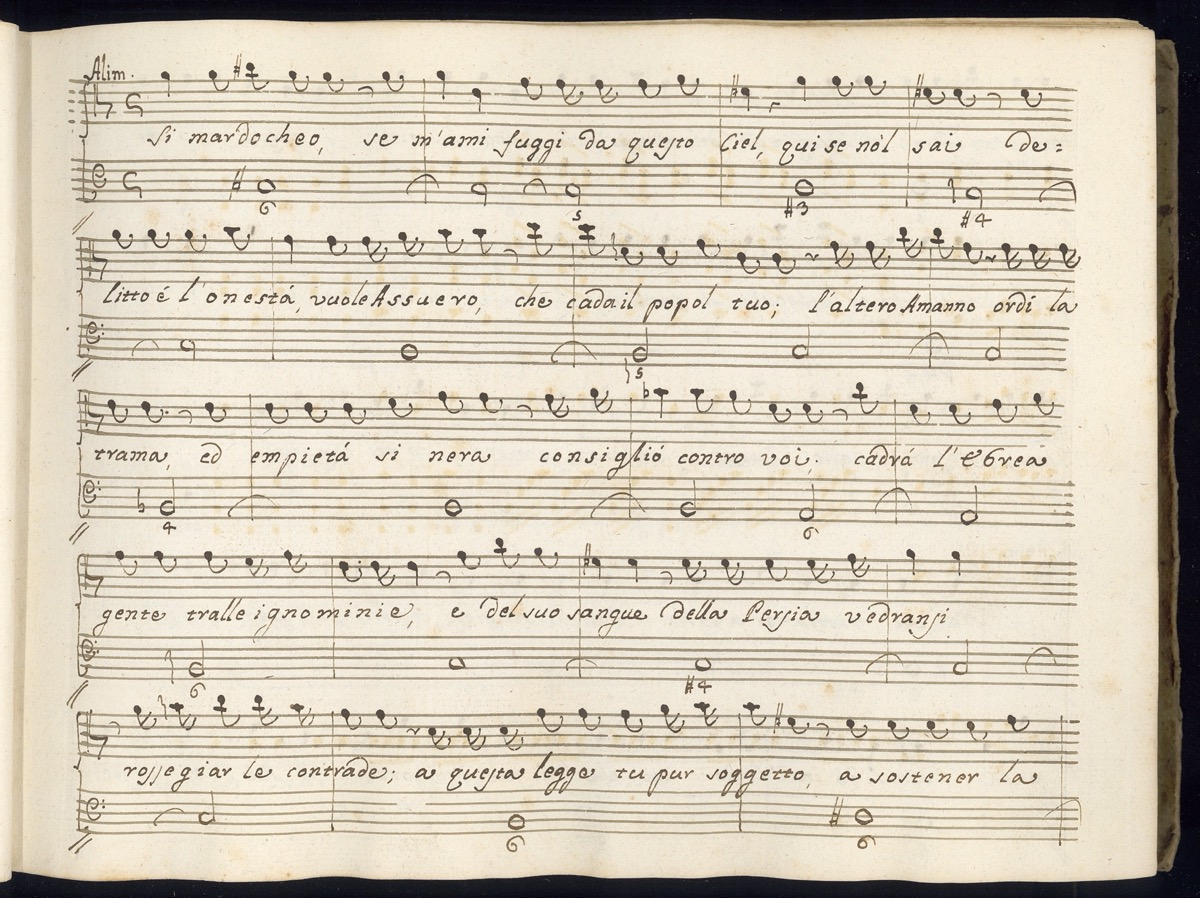 Alim.
Si mardocheo, se m'ami fuggi da questo Ciel, qui se nòl sai de=
6 5 #3 #4
litto é l'onestá, vuole Assuero, che cada il popol tuo; l'altero Amanno ordi la
5
trama, ed empietá si nera consiglió contro voi; cadrá l'Ebrea
4 6
gente tralle ignominie, e del suo sangue della Persia vedransi
6 #4
rossegiar le contrade; a questa legge tu pur soggetto, a sostener la
6 6